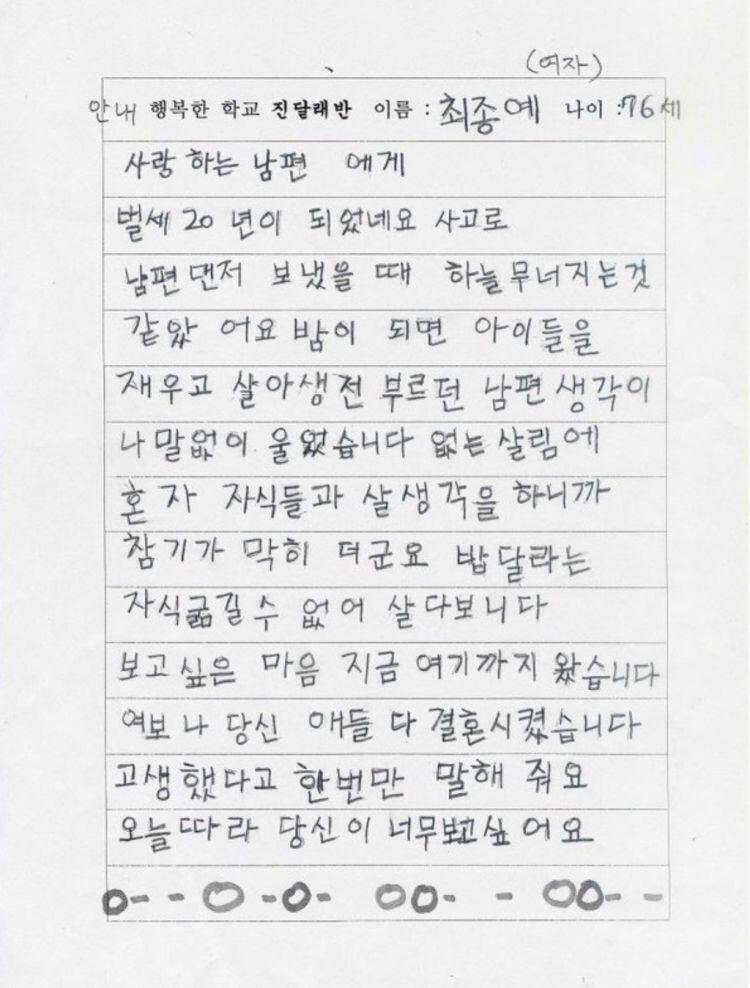 (여자)
안내 행복한 학교 진달래반 이름 : 최종예 나이 : 76세
사랑 하는 남편 에게
벌세 20 년이 되었네요 사고로
남편 맨저 보냈을 때 하늘무너지는것
같았 어요 밤이 되면 아이들을
재우고 살아생전 부르던 남편생각이
나 말없이 울었습니다 없는 살림에
혼자 자식들과 살생각을 하니까
참기가 막히 더군요 밥달라는
자식굶길수 없어 살다보니다
보고싶은 마음 지금 여기까지 왔습니다
여보 나 당신 애들 다 결혼시켰습니다
고생했다고 한번만 말해 줘요
오늘따라 당신이 너무보고싶어요